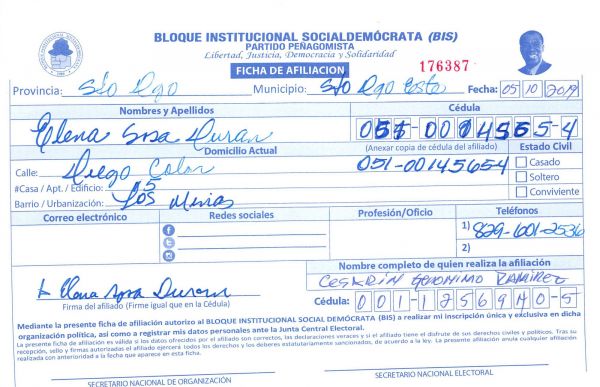 BLOQUE INSTITUCIONAL SOCIALDEMÓCRATA (BIS)
PARTIDO PEÑAGOMISTA
Libertad, Justicia, Democracia y Solidaridad
FICHA DE AFILIACION 176387
Provincia: Sto Dgo Municipio: Sto Dgo Este Fecha: 05 10 2019
Nombres y Apellidos Cédula
Elena Sosa Duran
(Anexar copia de cédula del afiliado)
Domicilio Actual Estado Civil
Calle: Diego Colon 051-00145654 Casado
#Casa / Apt. / Edificio: 15 Soltero
Barrio / Urbanización: Los Minas Conviviente
Correo electrónico Redes sociales Profesión/Oficio Teléfonos
1) 829-601-2536
2)
Nombre completo de quien realiza la afiliación
Elena Sosa Duran GERONIMO RAMIREZ
Firma del afiliado (Firme igual que en la Cédula) Cédula: 001-1256940-5
Mediante la presente ficha de afiliación autorizo al BLOQUE INSTITUCIONAL SOCIAL DEMÓCRATA (BIS) a realizar mi inscripción única y exclusiva en dicha
organización política, así como a registrar mis datos personales ante la Junta Central Electoral.
La presente ficha de afiliación es válida si los datos ofrecidos por el afiliado son correctos, las declaraciones veraces y si el afiliado tiene el disfrute de sus derechos civiles y políticos. Tras su
recepción, sello y firmas autorizadas el afiliado ejercerá todos los derechos y los deberes estatutariamente sancionados, de acuerdo a la ley. La presente afiliación anula cualquier afiliación
realizada con anterioridad a la fecha que aparece en esta ficha.
SECRETARIO NACIONAL DE ORGANIZACIÓN SECRETARIO NACIONAL ELECTORAL